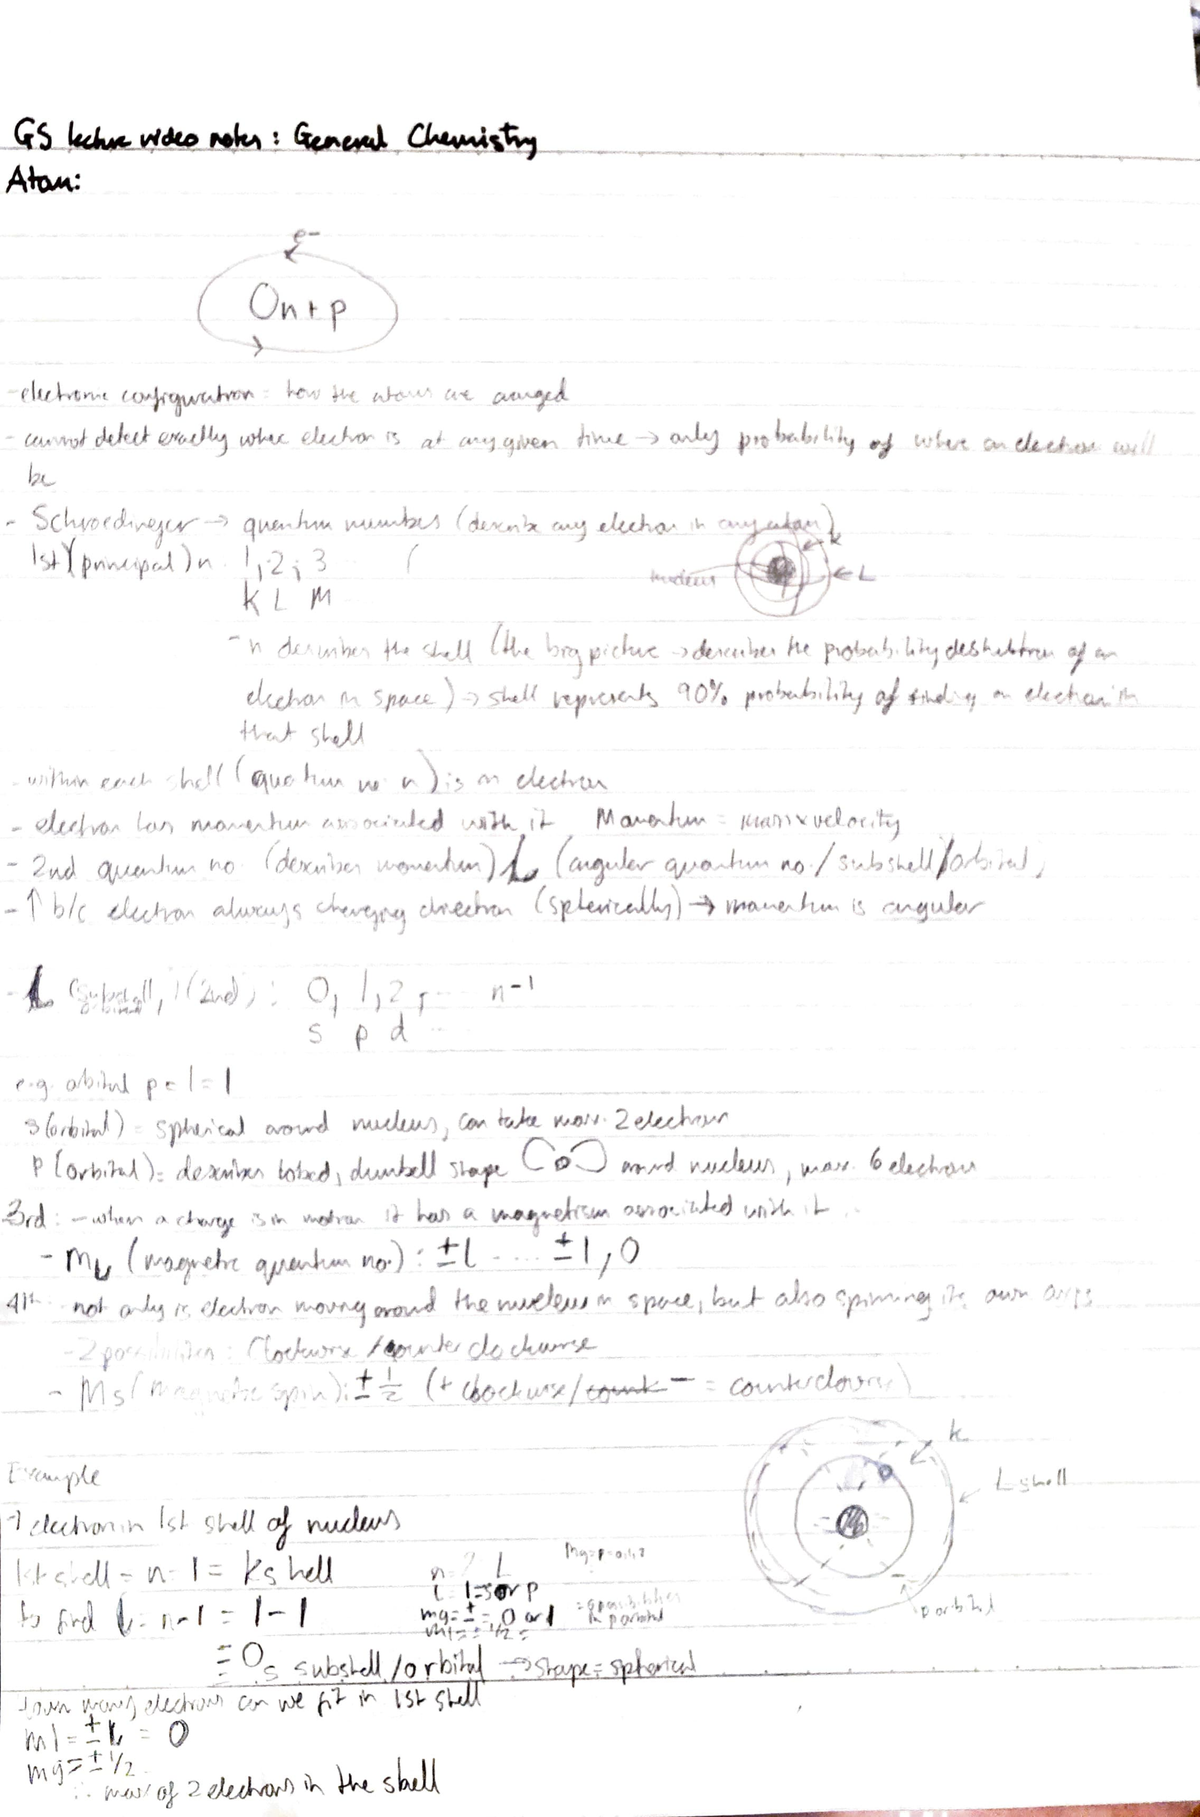 GS lecture video notes: General Chemistry
Atom:
e-
n + p
- electronic configuration = how the atoms are arranged
- cannot detect exactly where electron is at any given time → only probability of where an electron will
be
- Schroedineger → quantum numbers (describe any electron in any atom)
1st (principal) n 1, 2, 3
K L M
nucleus
K
L
- n describes the shell (the big picture → describes the probability destribution of an
electron in space) → shell represents 90% probability of finding an electron in
that shell
- within each shell (quantum no n) is an electron
- electron has momentum associated with it Momentum = mass x velocity
- 2nd quantum no. (describes momentum) L (angular quantum no. / subshell / orbital)
- ↑ b/c electron always changing direction (spherically) → momentum is angular
- L (subshell, orbital) (2nd) : 0, 1, 2, ... n-1
s p d ...
e.g. orbital p = l = 1
s (orbital) = spherical around nucleus, can take max. 2 electrons
p (orbital) = describes lobed, dumbell shape around nucleus, max. 6 electrons
3rd: - when a charge is in motion it has a magnetism associated with it
- mL (magnetic quantum no.) : ±L .... ±1, 0
4th not only is electron moving around the nucleus in space, but also spinning its own axis
- 2 possibilities : Clockwise / counter clockwise
- Ms (magnetic spin): ± 1/2 (+ clockwise / - = counterclowise)
Example
K
L shell
p orbital
→ electron in 1st shell of nucleus
1st shell = n = 1 = K shell
to find L = n-1 = 1-1
= 0 s subshell / orbital → shape = spherical
n = 2 L
L 1 = s or p
± = 0 or 1
± 1/2 =
how many electrons can we fit in 1st shell
ml = ±L = 0
mg = ± 1/2
∴ max of 2 electrons in the shell